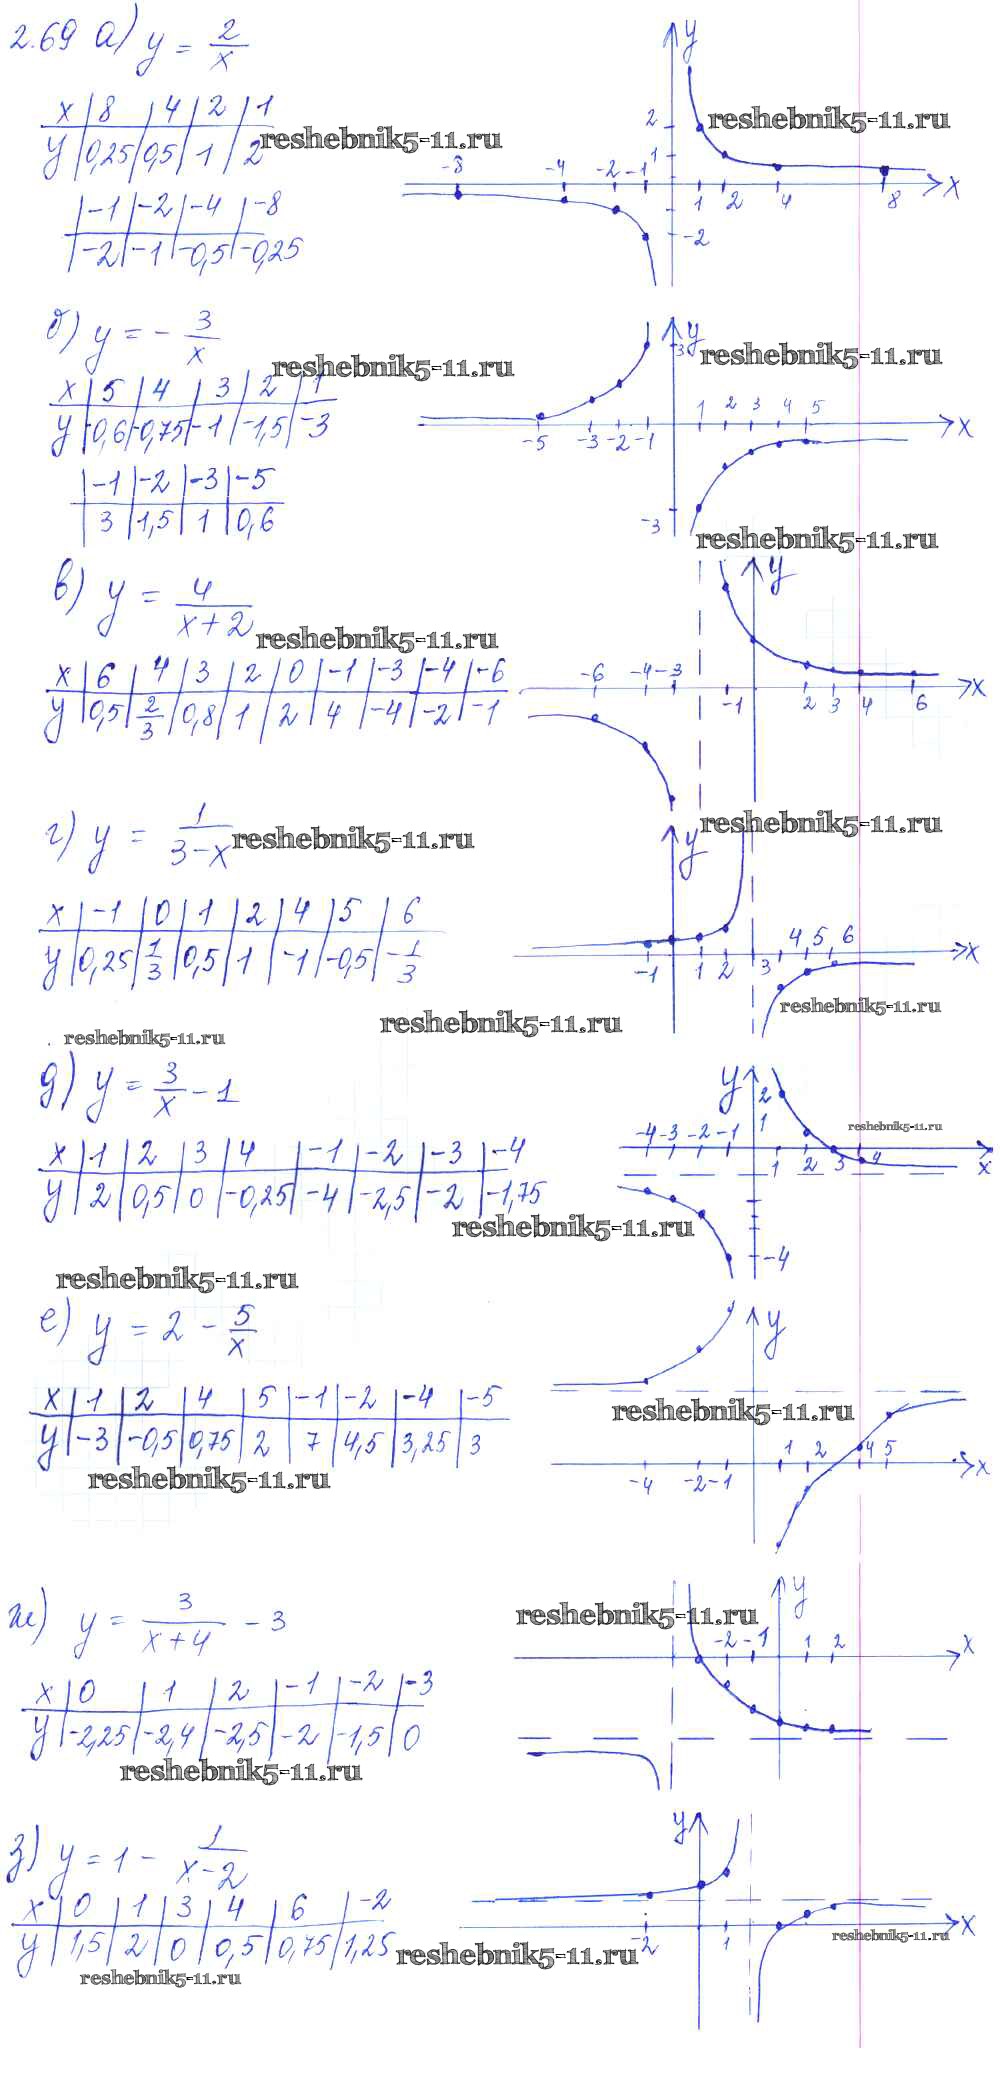 2.69 а) y = 2/x
x | 8 | 4 | 2 | 1
y | 0,25 | 0,5 | 1 | 2
reshebnik5-11.ru
| -1 | -2 | -4 | -8
| -2 | -1 | -0,5 | -0,25
y
reshebnik5-11.ru
2
1
-8 -4 -2 -1
1 2 4 8 x
-2
б) y = - 3/x
reshebnik5-11.ru
x | 5 | 4 | 3 | 2 | 1
y | -0,6 | -0,75 | -1 | -1,5 | -3
| -1 | -2 | -3 | -5
| 3 | 1,5 | 1 | 0,6
y
3
reshebnik5-11.ru
1 2 3 4 5
-5 -3 -2 -1 x
-3
reshebnik5-11.ru
в) y = 4/(x+2)
reshebnik5-11.ru
x | 6 | 4 | 3 | 2 | 0 | -1 | -3 | -4 | -6
y | 0,5 | 2/3 | 0,8 | 1 | 2 | 4 | -4 | -2 | -1
y
-6 -4 -3
-1 2 3 4 6 x
г) y = 1/(3-x)
reshebnik5-11.ru
x | -1 | 0 | 1 | 2 | 4 | 5 | 6
y | 0,25 | 1/3 | 0,5 | 1 | -1 | -0,5 | -1/3
reshebnik5-11.ru
y
4 5 6
-1 1 2 3 x
reshebnik5-11.ru
reshebnik5-11.ru
reshebnik5-11.ru
д) y = 3/x - 1
x | 1 | 2 | 3 | 4 | -1 | -2 | -3 | -4
y | 2 | 0,5 | 0 | -0,25 | -4 | -2,5 | -2 | -1,75
reshebnik5-11.ru
y
2
1
reshebnik5-11.ru
-4 -3 -2 -1
1 2 3 4 x
-4
reshebnik5-11.ru
е) y = 2 - 5/x
x | 1 | 2 | 4 | 5 | -1 | -2 | -4 | -5
y | -3 | -0,5 | 0,75 | 2 | 7 | 4,5 | 3,25 | 3
reshebnik5-11.ru
y
reshebnik5-11.ru
1 2 4 5
-4 -2 -1 x
ж) y = 3/(x+4) - 3
x | 0 | 1 | 2 | -1 | -2 | -3
y | -2,25 | -2,4 | -2,5 | -2 | -1,5 | 0
reshebnik5-11.ru
y
reshebnik5-11.ru
-2 -1 1 2 x
з) y = 1 - 1/(x-2)
x | 0 | 1 | 3 | 4 | 6 | -2
y | 1,5 | 2 | 0 | 0,5 | 0,75 | 1,25
reshebnik5-11.ru
reshebnik5-11.ru
y
-2 1 x
reshebnik5-11.ru